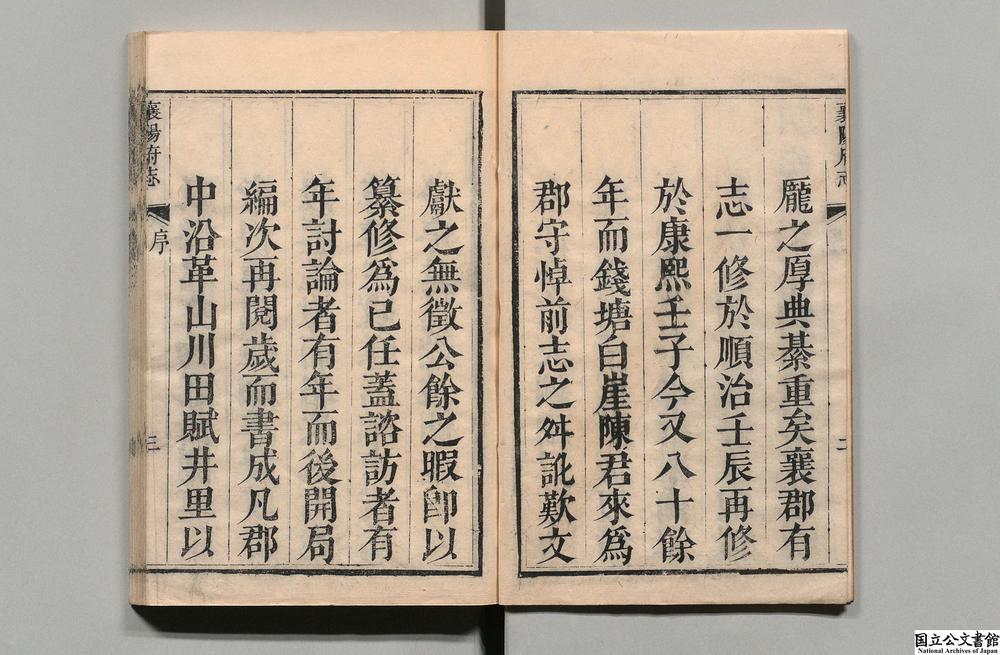 襄陽府志
二
厖之厚典綦重矣襄郡有
志一修於順治壬辰再修
於康熙壬子今又八十餘
年而錢塘白崖陳君來為
郡守悼前志之舛訛歎文
獻之無徵公餘之暇卽以
纂修為已任蓋諮訪者有
年討論者有年而後開局
編次再閱歲而書成凡郡
中沿革山川田賦井里以
襄陽府志
序
三
国立公文書館
National Archives of Japan